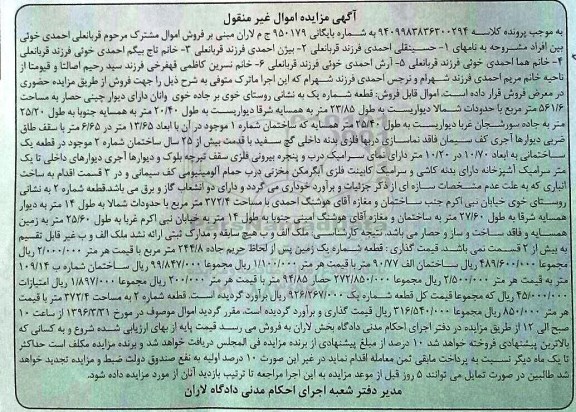 آگهی مزایده اموال غیر منقول
به موجب پرونده کلاسه ۹۴۰۹۹۸۳۸۳۶۳۰۰۲۹۴ به شماره بایگانی ۹۵۰۱۷۹ ج م لاران مبنی بر فروش اموال مشترک مرحوم قربانعلی احمدی خوئی
بین افراد مشروحه به نامهای ۱- حسینقلی احمدی فرزند قربانعلی ۲- بیژن احمدی فرزند قربانعلی ۳- خانم تاج بیگم احمدی خوئی فرزند قربانعلی
۴- خانم هما احمدی خوئی فرزند قربانعلی ۵- آرش احمدی خوئی فرزند قربانعلی ۶- خانم نسرین کاظمی قهفرخی فرزند سید رحیم اصالتا و قیومتا از
ناحیه خانم مریم احمدی فرزند شهرام و نرجس احمدی فرزند شهرام که این اجرا ماترک متوفی به شرح ذیل را جهت فروش از طریق مزایده حضوری
در معرض فروش قرار داده است. اموال قابل فروش: قطعه شماره یک به نشانی روستای خوی بر جاده خوی وانان دارای دیوار چینی حصار به مساحت
۵۶۱/۶ متر مربع با حدودات شمالا دیواریست به طول ۲۳/۸۵ متر به همسایه شرقا دیواریست به طول ۲۰/۴۰ متر به همسایه جنوبا به طول ۲۵/۲۰
متر به جاده سورشجان غربا دیواریست به طول ۲۵/۴۰ متر همسایه که ساختمان شماره ۱ موجود در آن با ابعاد ۱۳/۶۵ متر در ۶/۶۵ متر با سقف طاق
ضربی دیوارها آجری کف سیمان فاقد نماسازی دربها فلزی بدنه داخلی گچ سفید با قدمت بیش از ۲۵ سال ساختمان شماره ۲ موجود در قطعه یک
ساختمانی به ابعاد ۱۰/۷۰ در ۱۰/۲۰ متر دارای نمای سرامیک درب و پنجره بیرونی فلزی سقف تیرچه بلوک و دیوارها آجری دیوارهای داخلی تا یک
متر سرامیک آشپزخانه دارای بدنه کاشی و سرامیک کابینت فلزی آبگرمکن مخزنی درب حمام آلومینیومی کف سیمانی و در ۳ قسمت اقدام به ساخت
انباری که به علت عدم مشخصات سازه ای از ذکر جزئیات و برآورد خودداری می گردد و دارای دو انشعاب گاز و برق می باشد.قطعه شماره ۲ به نشانی
روستای خوی خیابان نبی اکرم جنب ساختمان و مغازه آقای هوشنگ احمدی با مساحت ۳۷۲/۴ متر مربع با حدودات شمالا به طول ۱۴ متر به دیوار
همسایه شرقا به طول ۲۷/۶۰ متر به ساختمان و مغازه آقای هوشنگ امینی جنوبا به طول ۱۴ متر به خیابان نبی اکرم غربا به طول ۲۵/۶۰ متر به زمین
همسایه و فاقد ساخت و ساز و حصار می باشد. نتیجه کارشناسی - ملک الف و ب هیچ سابقه و مدارک ثبتی ارائه نشد ملک الف و ب غیر قابل تقسیم
به بیش از ۲ قسمت نمی باشد. قیمت گذاری : قطعه شماره یک زمین پس از لحاظ حریم جاده ۲۴۴/۸ متر مربع با قیمت هر متر ۲/۰۰۰/۰۰۰ ریال
مجموعا ۴۸۹/۶۰۰/۰۰۰ ریال ساختمان الف ۹۰/۷۷ متر با قیمت هر متر ۱/۱۰۰/۰۰۰ ریال مجموعا ۹۹/۸۴۷/۰۰۰ ریال ساختمان شماره ب ۱۰۹/۱۴
متر به قیمت هر متر ۲/۵۰۰/۰۰۰ ریال مجموعا ۲۷۲/۸۵۰/۰۰۰ حصار ۹۴/۸۵ متر با قیمت هر متر ۲۰۰/۰۰۰ ریال مجموعا ۱/۸۹۷/۰۰۰ ریال امتیازات
۴۵/۰۰۰/۰۰۰ ریال که مجموعا قیمت کل قطعه شماره یک ۹۲۶/۲۶۷/۰۰۰ ریال برآورد گردیده است. قطعه شماره ۲ به مساحت ۳۷۲/۴ متر با قیمت
هر متر ۸۵۰/۰۰۰ ریال مجموعا ۳۱۶/۵۴۰/۰۰۰ ریال قیمت گذاری و برآورد گردیده است. مقرر گردید اموال موصوف در مورخ ۱۳۹۶/۳/۳۱ از ساعت ۱۰
صبح الی ۱۲ از طریق مزایده در دفتر اجرای احکام مدنی دادگاه بخش لاران به فروش می رسد قیمت پایه از بهای ارزیابی شده شروع و به کسانی که
بالاترین پیشنهادی فروخته خواهد شد ۱۰ درصد از مبلغ پیشنهادی از برنده مزایده فی المجلس دریافت خواهد شد و برنده مزایده مکلف است حداکثر
تا یک ماه دیگر نسبت به پرداخت مابقی ثمن معامله اقدام نماید در غیر این صورت ۱۰ درصد اولیه به نفع صندوق دولت ضبط و مزایده تجدید خواهد
شد طالبین در صورت تمایل می توانند ۵ روز قبل از موعد مزایده به این اجرا مراجعه تا ترتیب بازدید آنان از مورد مزایده داده شود.
مدیر دفتر شعبه اجرای احکام مدنی دادگاه لاران